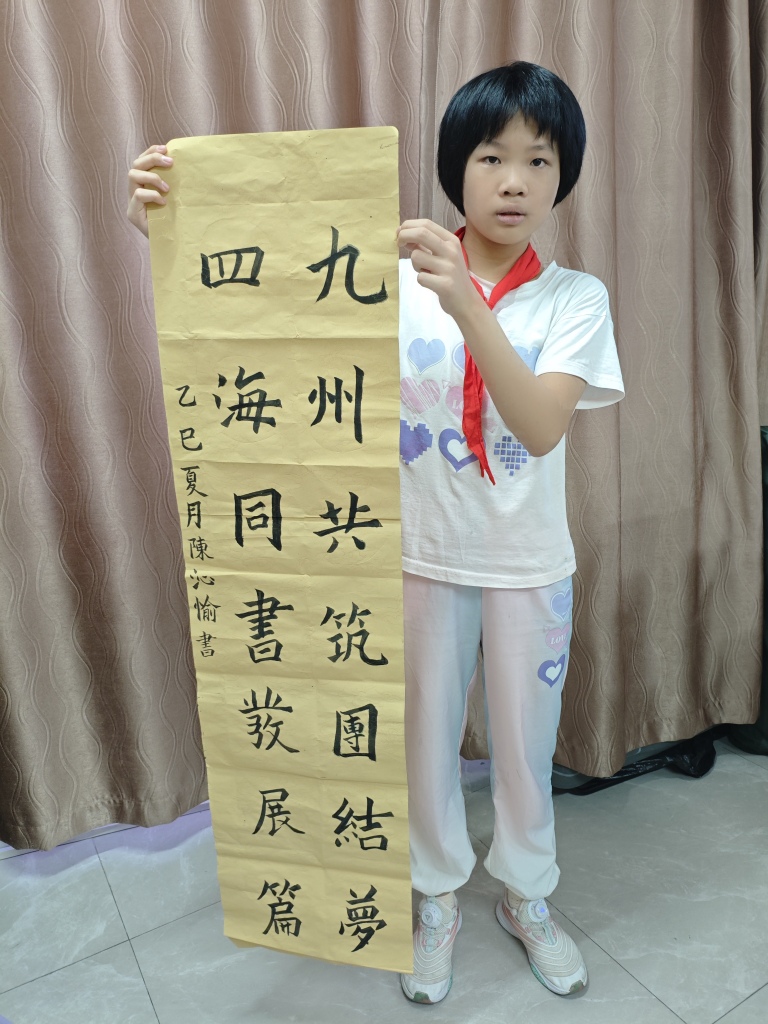 九州共筑團結夢
四海同書發展篇
乙巳夏月陳沁愉書